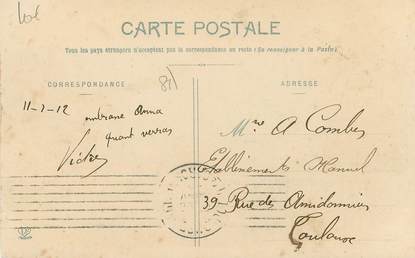 106
CARTE POSTALE
Tous les pays étrangers n'acceptent pas la correspondance au recto (Se renseigner à la Poste)
CORRESPONDANCE
ADRESSE
81
11-2-12
Anna
quant verras
Victor
A Combes
Etablinements Manuel
39 - Rue des Amidonniers
Toulouse